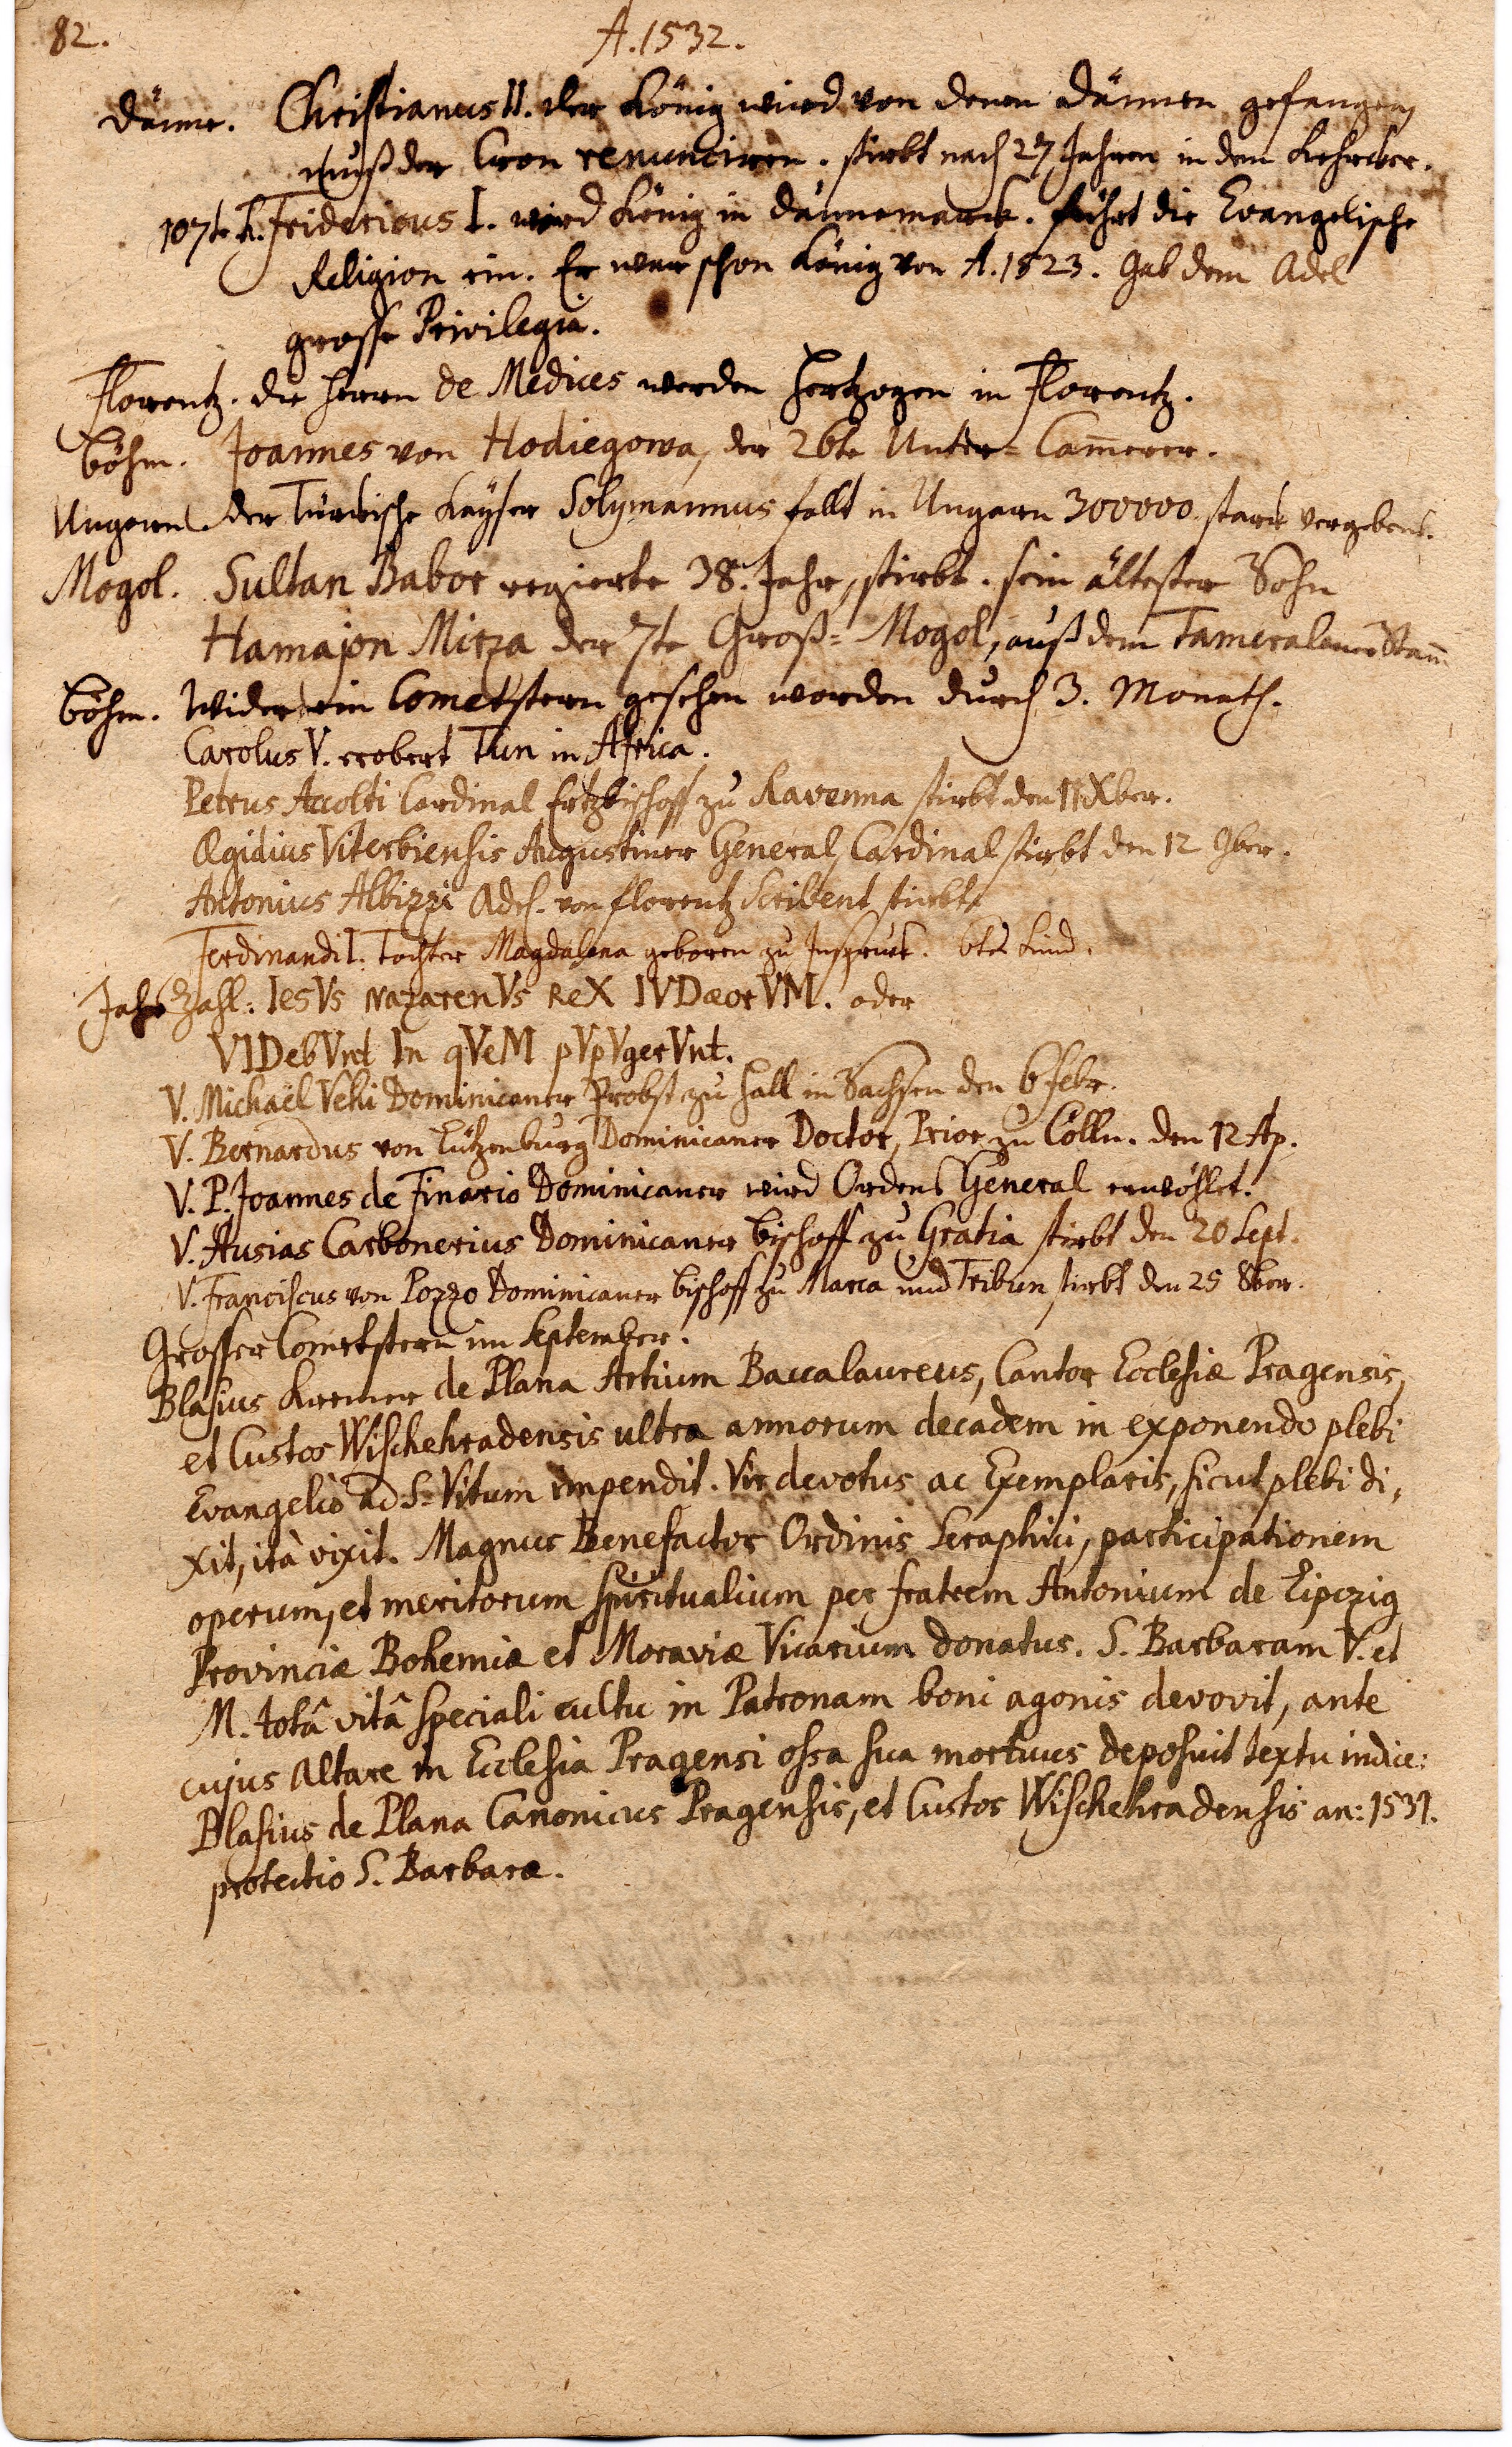 82.
A. 1532.
Dänne. Christianus II. der König wird von denen Dännen gefangen,
muß der Cron renunciren. stirbt nach 27 Jahren in dem Kehrcker.
107te K. Fridericus I. wird König in Dännemarck. führt die Evangelische
Religion ein. Er war schon König von A. 1523. Gab dem Adel
grosse Privilegia.
Florentz. die Herrn de Medices werden Hertzogen in Florentz.
Böhm. Joannes von Hodiegowa, der 26te Unter-Cam̄erer.
Ungarn. der Türckische Kayser Solymannus fallt in Ungarn 300000 starck vergebens.
Mogol. Sultan Babor regierte 38. Jahr, stirbt. sein ältester Sohn
Hamajon Mirza der 7te Groß-Mogol, auß dem Tameralaner Stam̄
Böhm. Wider ein Cometstern gesehen worden durch 3. Monath.
Carolus V. erobert Tun in Africa.
Petrus Accolti Cardinal Ertzbischoff zu Ravenna stirbt den 11 Xber.
Ægidius Viterbiensis Augustiner General, Cardinal stirbt den 12 9ber.
Antonius Albizzi Adel. von Florentz Scribent stirbt
Ferdinandi I. Tochter Magdalena geboren zu Inspruck. 6te Kind.
Jahr Zahl: IesVs NazarenVs ReX IVDæorVM. oder
VIDebVnt In qVeM pVpVgerVnt.
V. Michaël Vehi Dominicaner Probst zu Hall in Sachsen den 6 Febr.
V. Bernardus von Lützenburg Dominicaner Doctor, Prior zu Cölln. den 12 Ap.
V. P. Joannes de Finario Dominicaner wird Ordens General erwöhlet.
V. Ausias Carbonerius Dominicaner Bischoff zu Gratia stirbt den 20 Sept.
V. Franciscus von Pozzo Dominicaner Bischoff zu Marca und Tribun stirbt den 25 8ber.
Grosser Cometstern im September.
Blasius Kremer de Plana Artium Baccalaureus, Cantor Ecclesiæ Pragensis,
et Custos Wischehradensis ultra annorum decadem in exponendo plebi
Evangelio ad S. Vitum impendit. Vir devotus ac Exemplaris, sicut plebi di,
xit, ità vixit. Magnus Benefactor Ordinis Seraphici, participationem
operum, et meritorum spiritualium per fratrem Antonium de Lipczig
Provinciæ Bohemiæ et Moraviæ Vicarium donatus. S. Barbaram V. et
M. totâ vitâ speciali cultu in Patronam boni agonis devovit, ante
cujus Altare in Ecclesia Pragensi ossa sua mortuus deposuit textu indice:
Blasius de Plana Canonicus Pragensis, et Custos Wischehradensis an: 1531.
protectio S. Barbaræ.